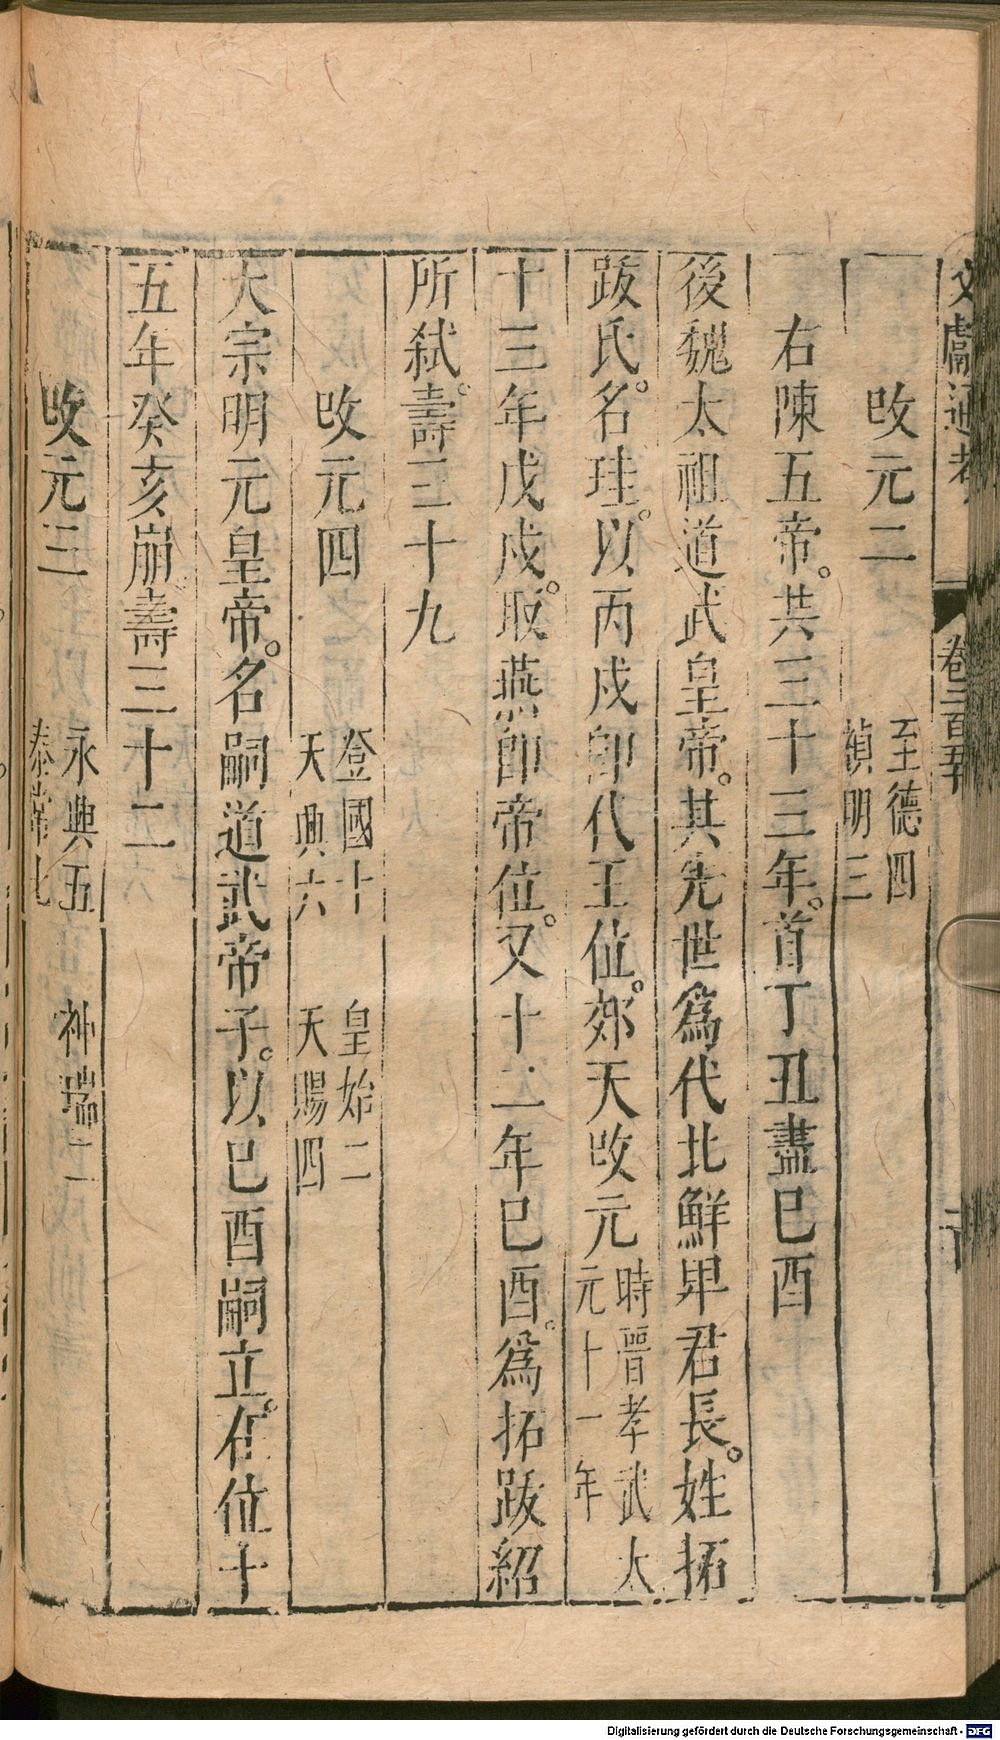 文獻通考 卷二百五十
改元二 至德四 禎明三
右陳五帝。共三十三年。首丁丑盡巳酉
後魏太祖道武皇帝。其先世爲代北鮮卑君長。姓拓
跋氏。名珪。以丙戌卽代王位。郊天改元時晉孝武太元十一年
十三年戊戌。取燕卽帝位。又十二年巳酉。爲拓跋紹
所弑。壽三十九
改元四 登國十 天興六 皇始二 天賜四
太宗明元皇帝。名嗣道武帝子。以巳酉嗣立。在位十
五年癸亥崩。壽三十二
改元三 永興五 泰常七 神瑞二
Digitalisierung gefördert durch die Deutsche Forschungsgemeinschaft - DFG